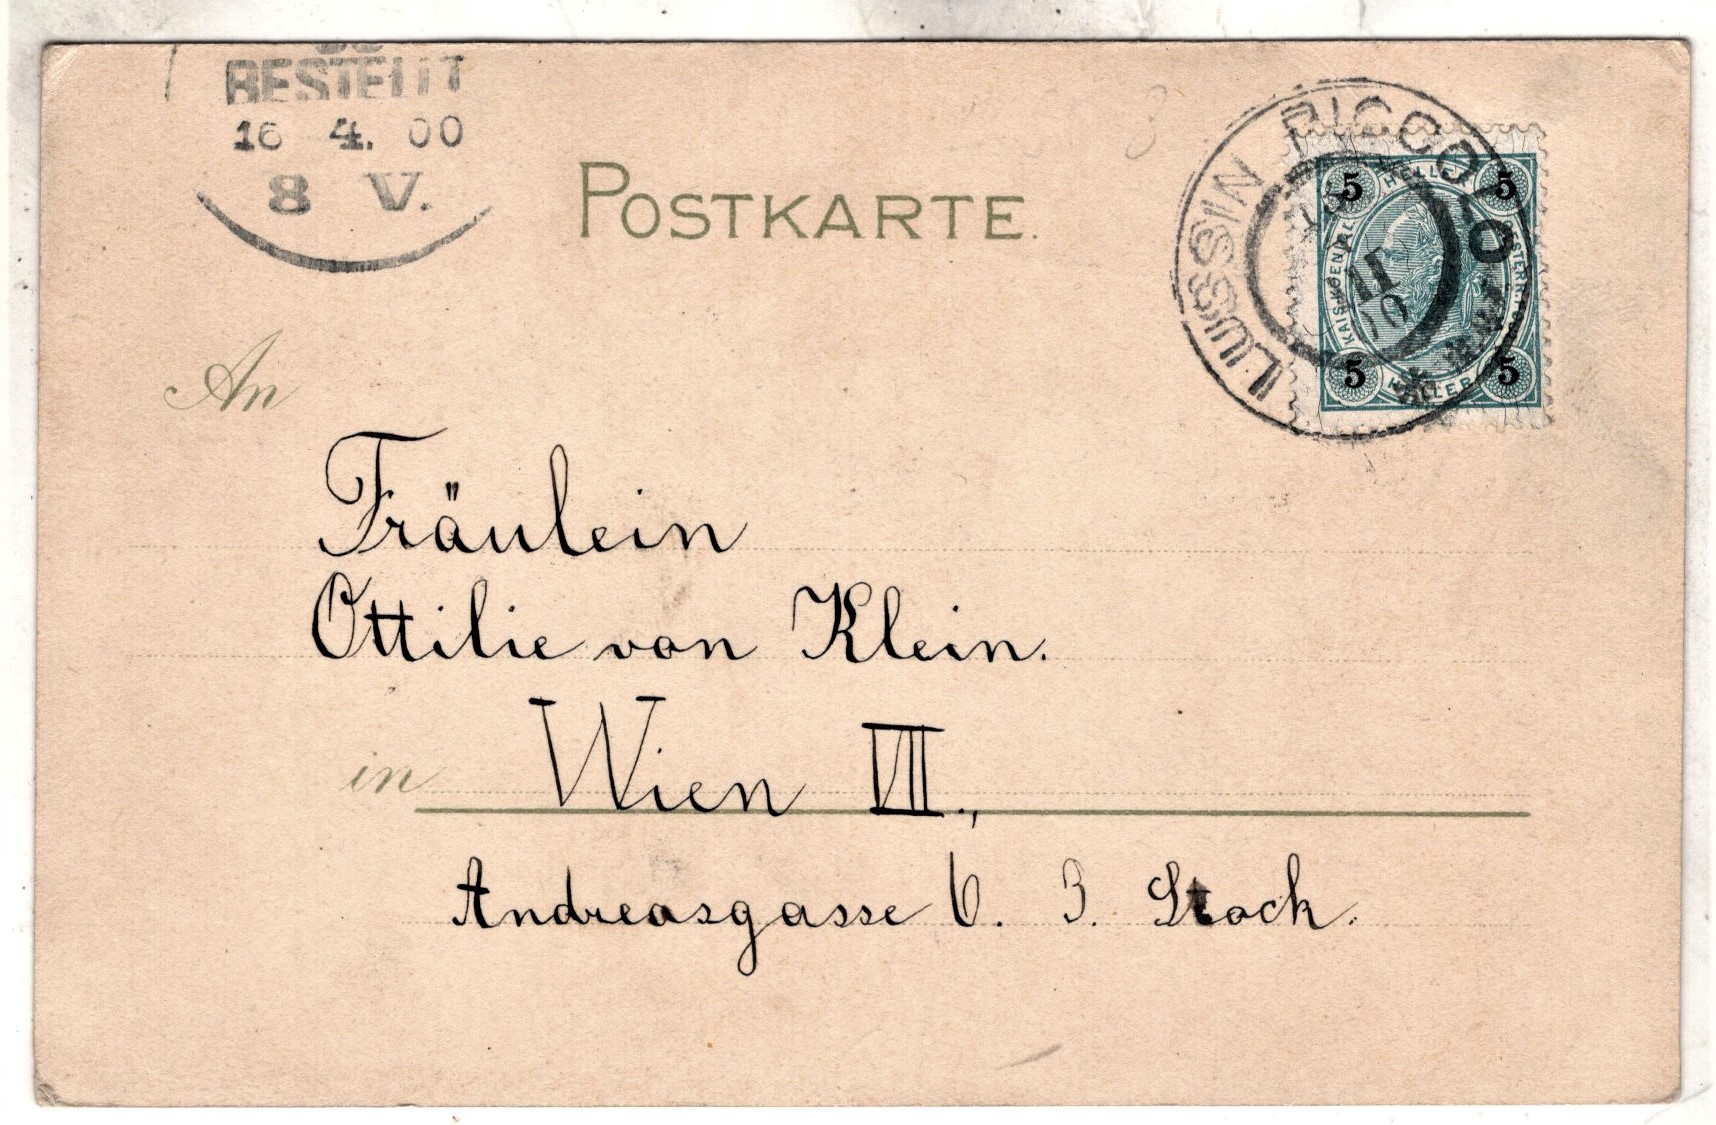 BESTELLT
16 4. 00
8 V.
POSTKARTE.
LUSSIN PICCOLO
5 HELLER 5
KAIS. KOENIGL.
5 HELLER 5
An
Fräulein
Ottilie von Klein.
in Wien VII.,
Andreasgasse 6. 3. Stock.